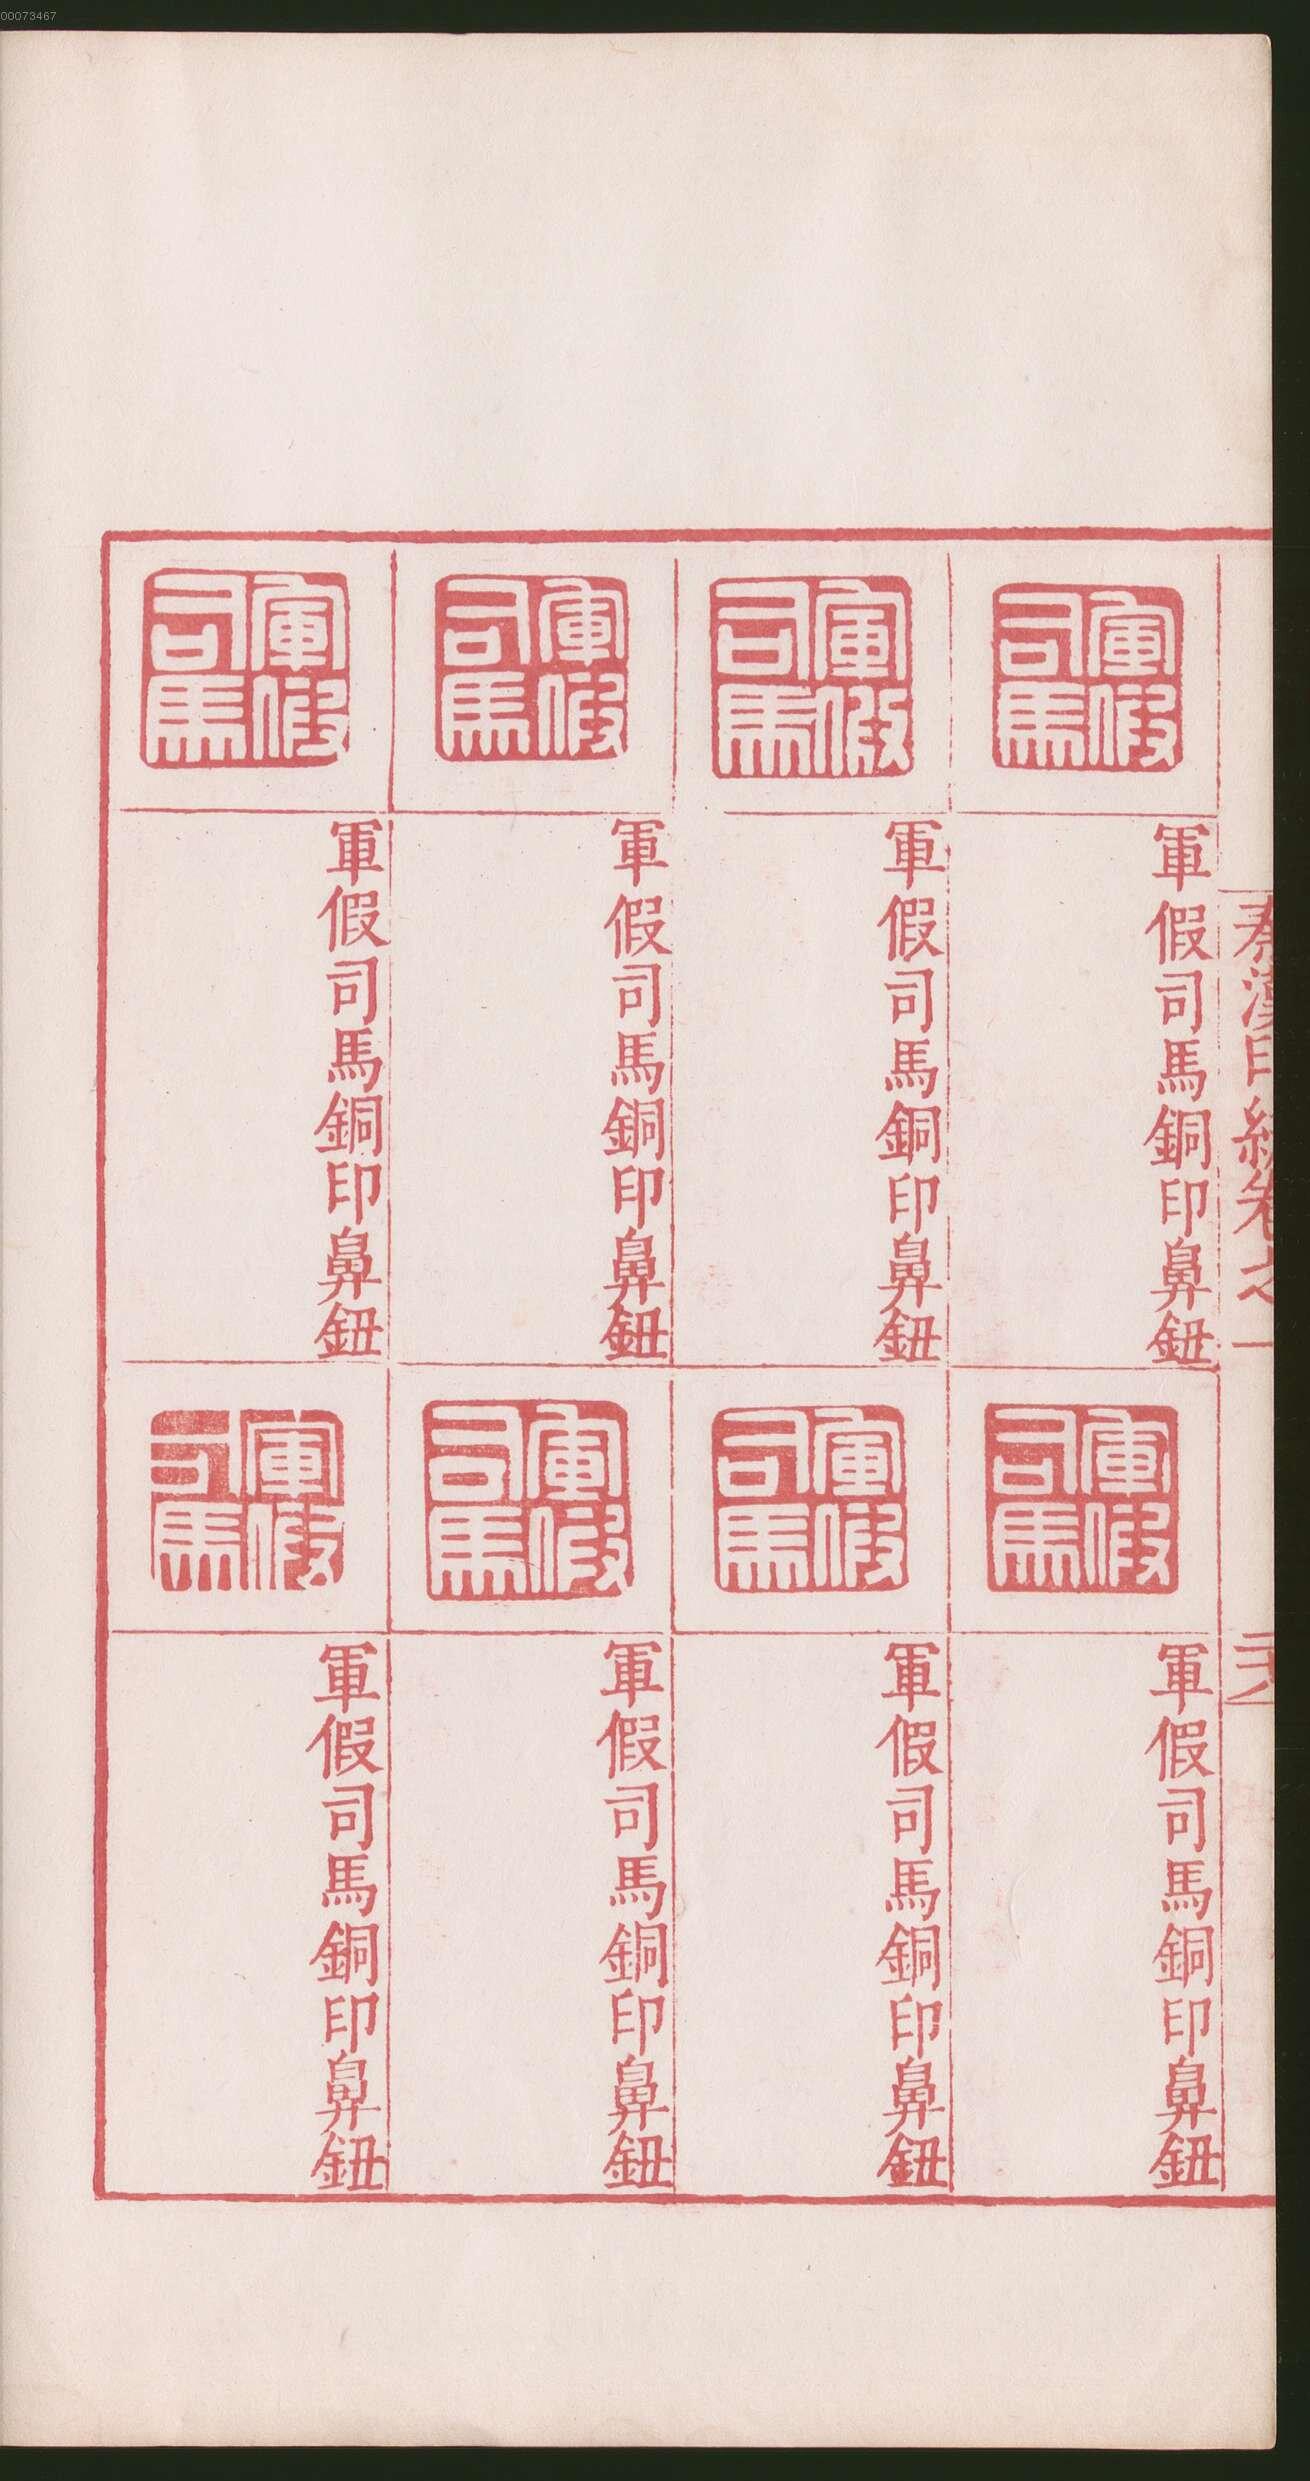 00073467
秦漢印統卷之一
軍假司馬
軍假司馬銅印鼻鈕
軍假司馬
軍假司馬銅印鼻鈕
軍假司馬
軍假司馬銅印鼻鈕
軍假司馬
軍假司馬銅印鼻鈕
軍假司馬
軍假司馬銅印鼻鈕
軍假司馬
軍假司馬銅印鼻鈕
軍假司馬
軍假司馬銅印鼻鈕
軍假司馬
軍假司馬銅印鼻鈕